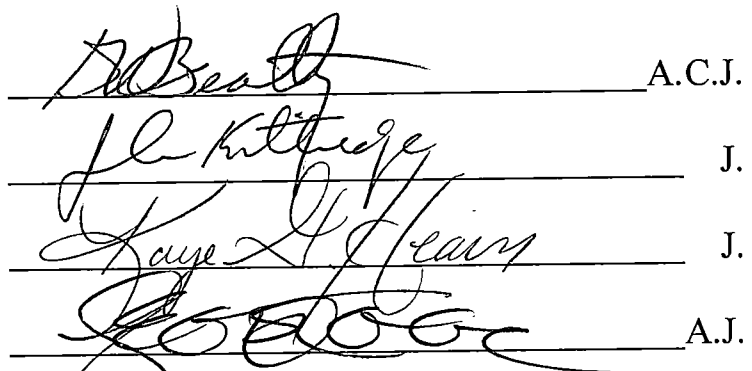 DW Beatty A.C.J.
John Kittredge J.
Kaye G Hearn J.
A.J.